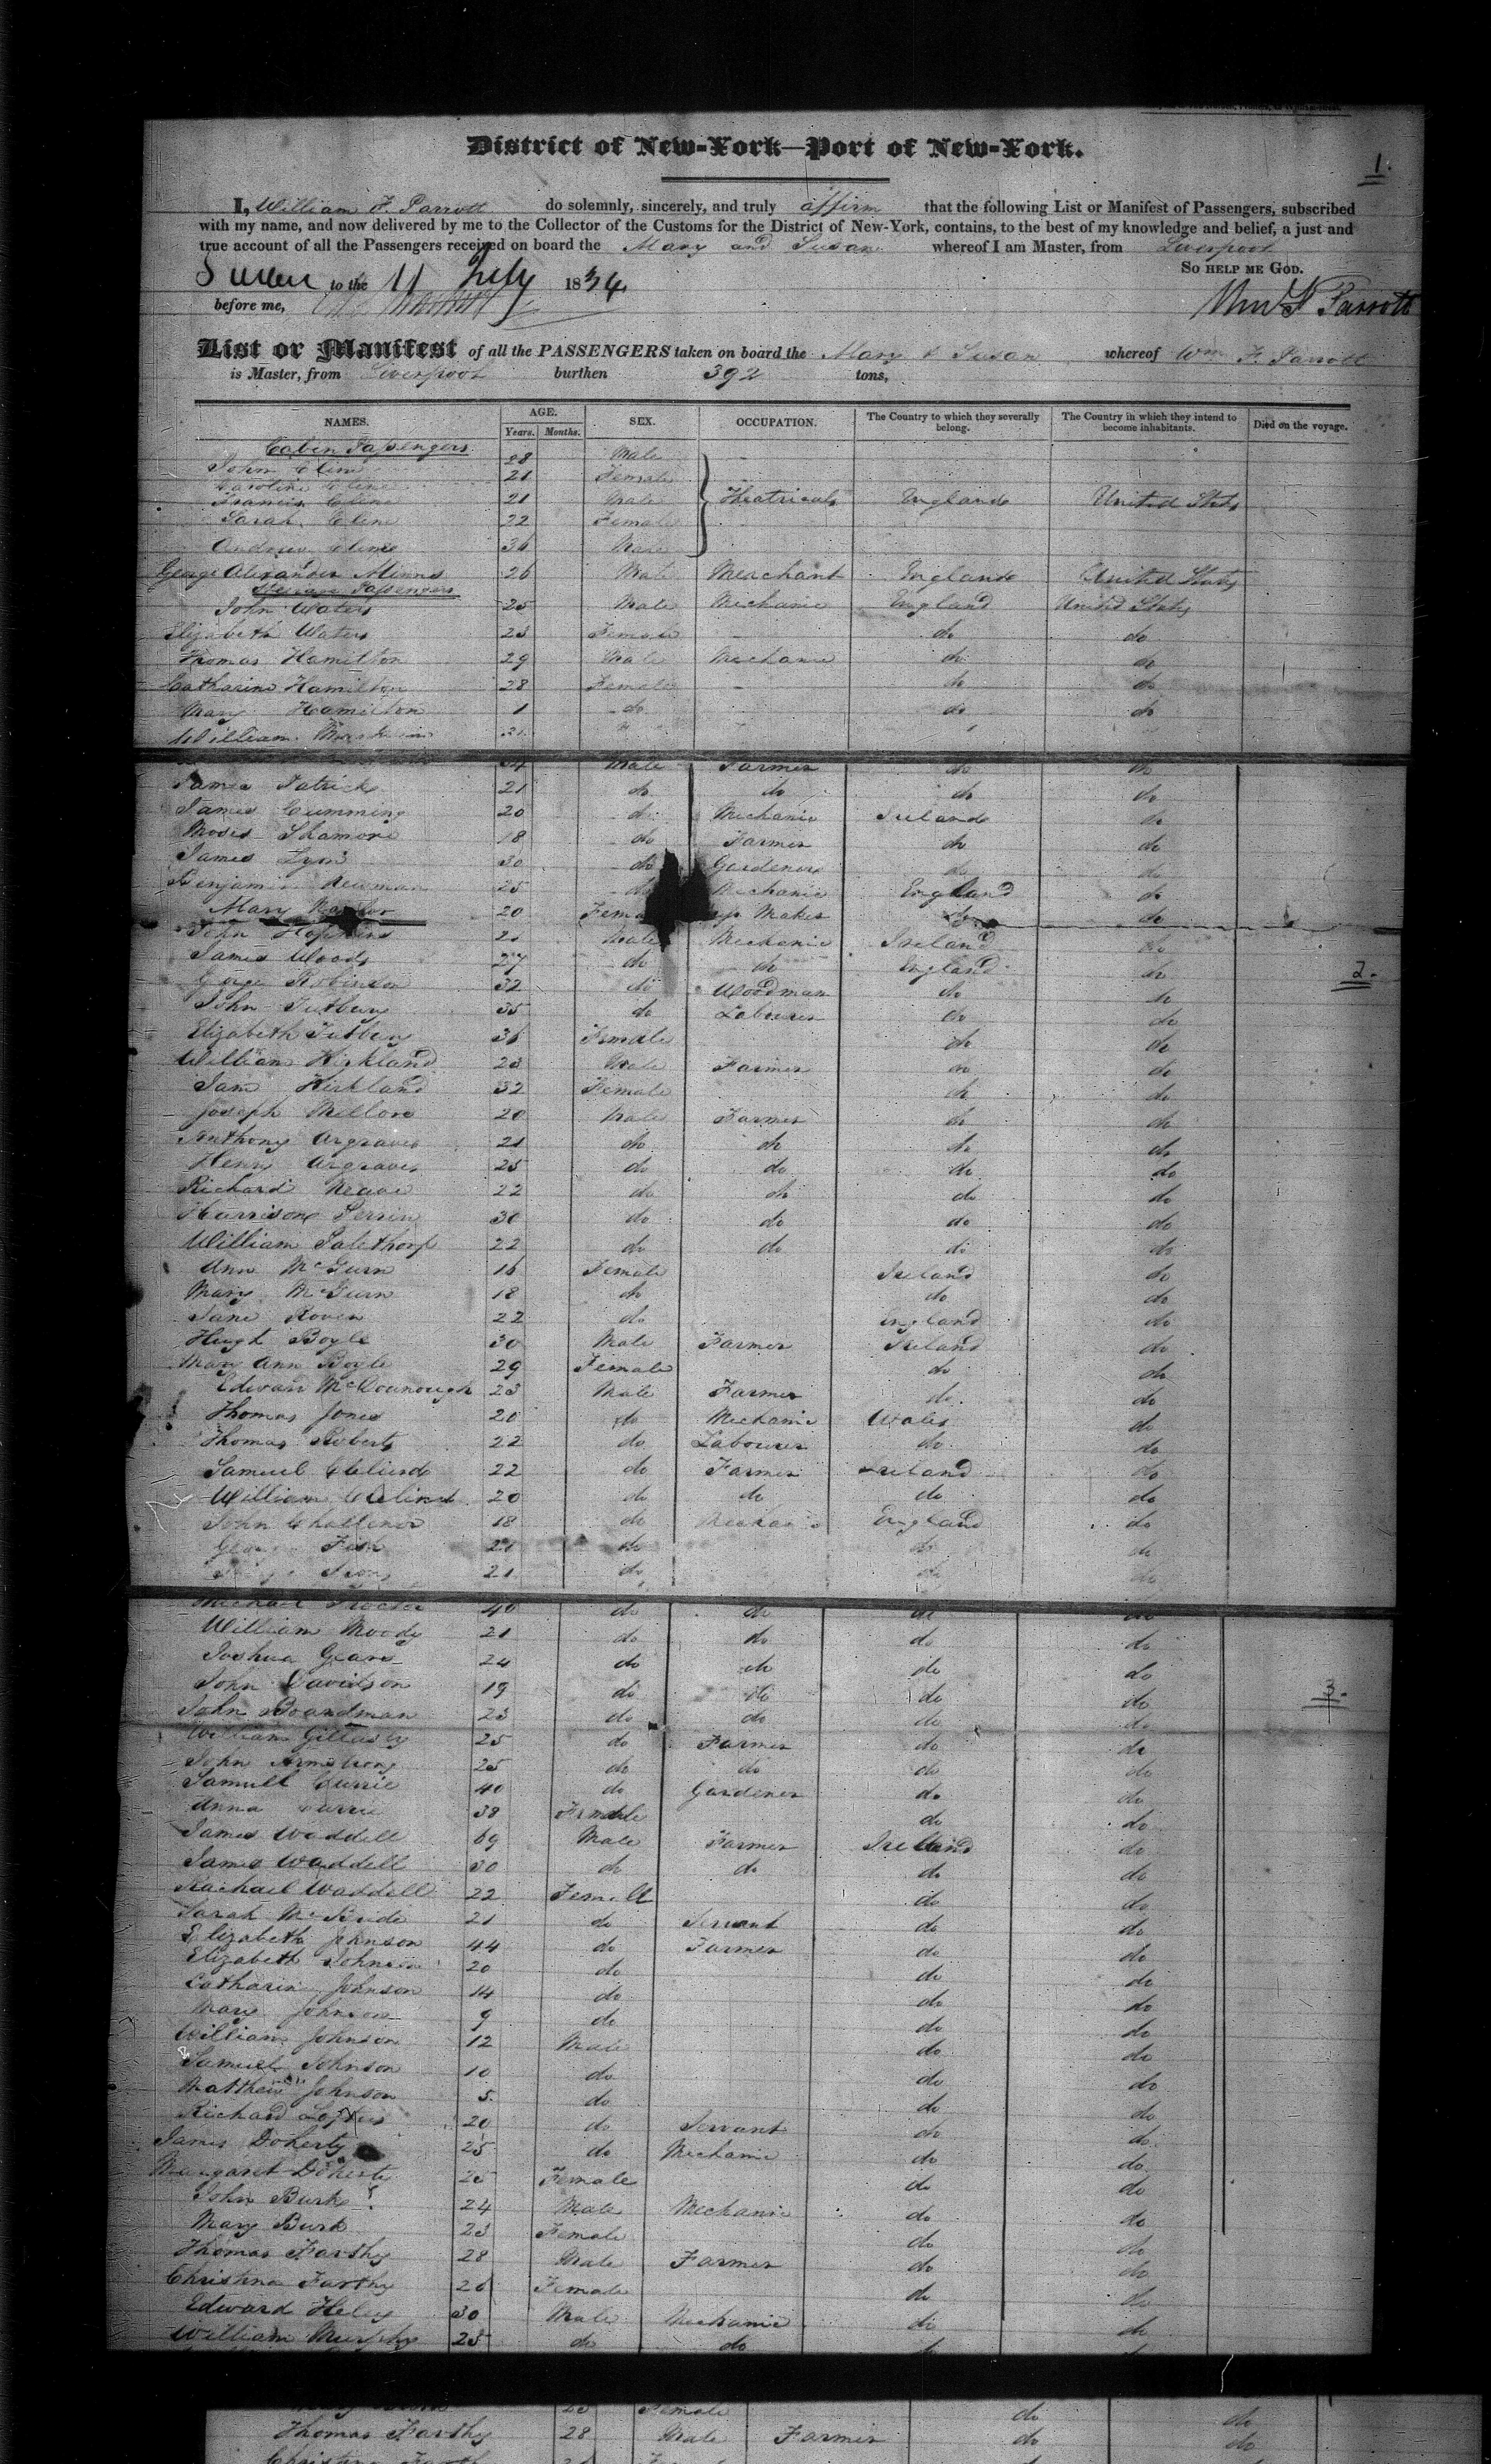 District of New-York—Port of New-York.
1.
I, William F Parrott do solemnly, sincerely, and truly affirm that the following List or Manifest of Passengers, subscribed
with my name, and now delivered by me to the Collector of the Customs for the District of New-York, contains, to the best of my knowledge and belief, a just and
true account of all the Passengers received on board the Mary and Susan whereof I am Master, from Liverpool
So help me God.
to the 11 July 1834
before me,
Wm F Parrott
List or Manifest of all the PASSENGERS taken on board the Mary & Susan whereof Wm F. Parrott
is Master, from Liverpool burthen 392 tons,
NAMES. AGE. SEX. OCCUPATION. The Country to which they severally belong. The Country in which they intend to become inhabitants. Died on the voyage.
Years. Months.
Cabin Passengers
John Cline 28 Male
Caroline Cline 21 Female
Francis Cline 21 Male Theatricals England United States
Sarah Cline 22 Female
Andrew Cline 36 Male
George Alexander 26 Male Merchant England United States
Passengers
John Waters 25 Male Mechanic England United States
Elizabeth Waters 23 Female do do
Thomas Hamilton 29 Male Mechanic do do
Catharine Hamilton 28 Female do do
Mary Hamilton 1 do do do
William 21
34 Male Farmer do do
James Patrick 21 do do do do
James Cumming 20 do Mechanic Ireland do
Moses 18 do Farmer do do
James Lyon 30 do Gardener do do
Benjamin Newman 25 do Mechanic England do
Mary 20 Female Maker do do
John Hopkins 21 Male Mechanic Ireland do
James Woods 27 do do England do
2.
George Robinson 32 do Woodman do do
John Tutbury 35 do Labourer do do
Elizabeth Tutbury 36 Female do do
William Kirkland 23 Male Farmer do do
Jane Kirkland 32 Female do do
Joseph Mellor 20 Male Farmer do do
Anthony Argraves 21 do do do do
Henry Argraves 25 do do do do
Richard Neave 22 do do do do
Harrison Perrin 30 do do do do
William Palethorp 22 do do do do
Ann McGurn 16 Female Ireland do
Mary McGurn 18 do do do
Jane Roven 22 do England do
Hugh Boyle 30 Male Farmer Ireland do
Mary Ann Boyle 29 Female do do
Edwan McDonnough 23 Male Farmer do do
Thomas Jones 20 do Mechanic Wales do
Thomas Roberts 22 do Labourer do do
Samuel 22 do Farmer Ireland do
William 20 do do do do
John Challinor 18 do Mechanic England do
George Fish 21 do do do
21 do do do
Michael Procter 40 do do do do
William Moody 21 do do do do
Joshua Gears 24 do do do do
John Davidson 19 do do do do
3.
John Boardman 23 do do do do
William 25 do Farmer do do
John Armstrong 25 do do do do
Samuel Currie 40 do Gardener do do
Anna Currie 38 Female do do
James Waddell 69 Male Farmer Ireland do
James Waddell 30 do do do do
Rachael Waddell 22 Female do do
Sarah McBride 21 do Servant do do
Elizabeth Johnson 44 do Farmer do do
Elizabeth Johnson 20 do do do
Catharin Johnson 14 do do do
Mary Johnson 9 do do do
William Johnson 12 Male do do
Samuel Johnson 10 do do do
Matthew Johnson 5 do do do
Richard 20 do Servant do do
James Doherty 25 do Mechanic do do
Margaret Doherty 25 Female do do
John Burk 24 Male Mechanic do do
Mary Burk 23 Female do do
Thomas Farthy 28 Male Farmer do do
Christina Farthy 26 Female do do
Edward Heley 30 Male Mechanic do do
William Murphy 23 do do do do
23 Female do do
Thomas Farthy 28 Male Farmer do do